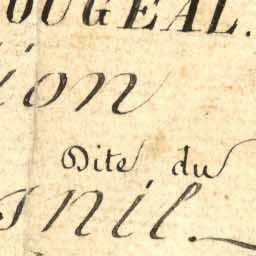 OUGEAL.
ion
Dite du
snil.